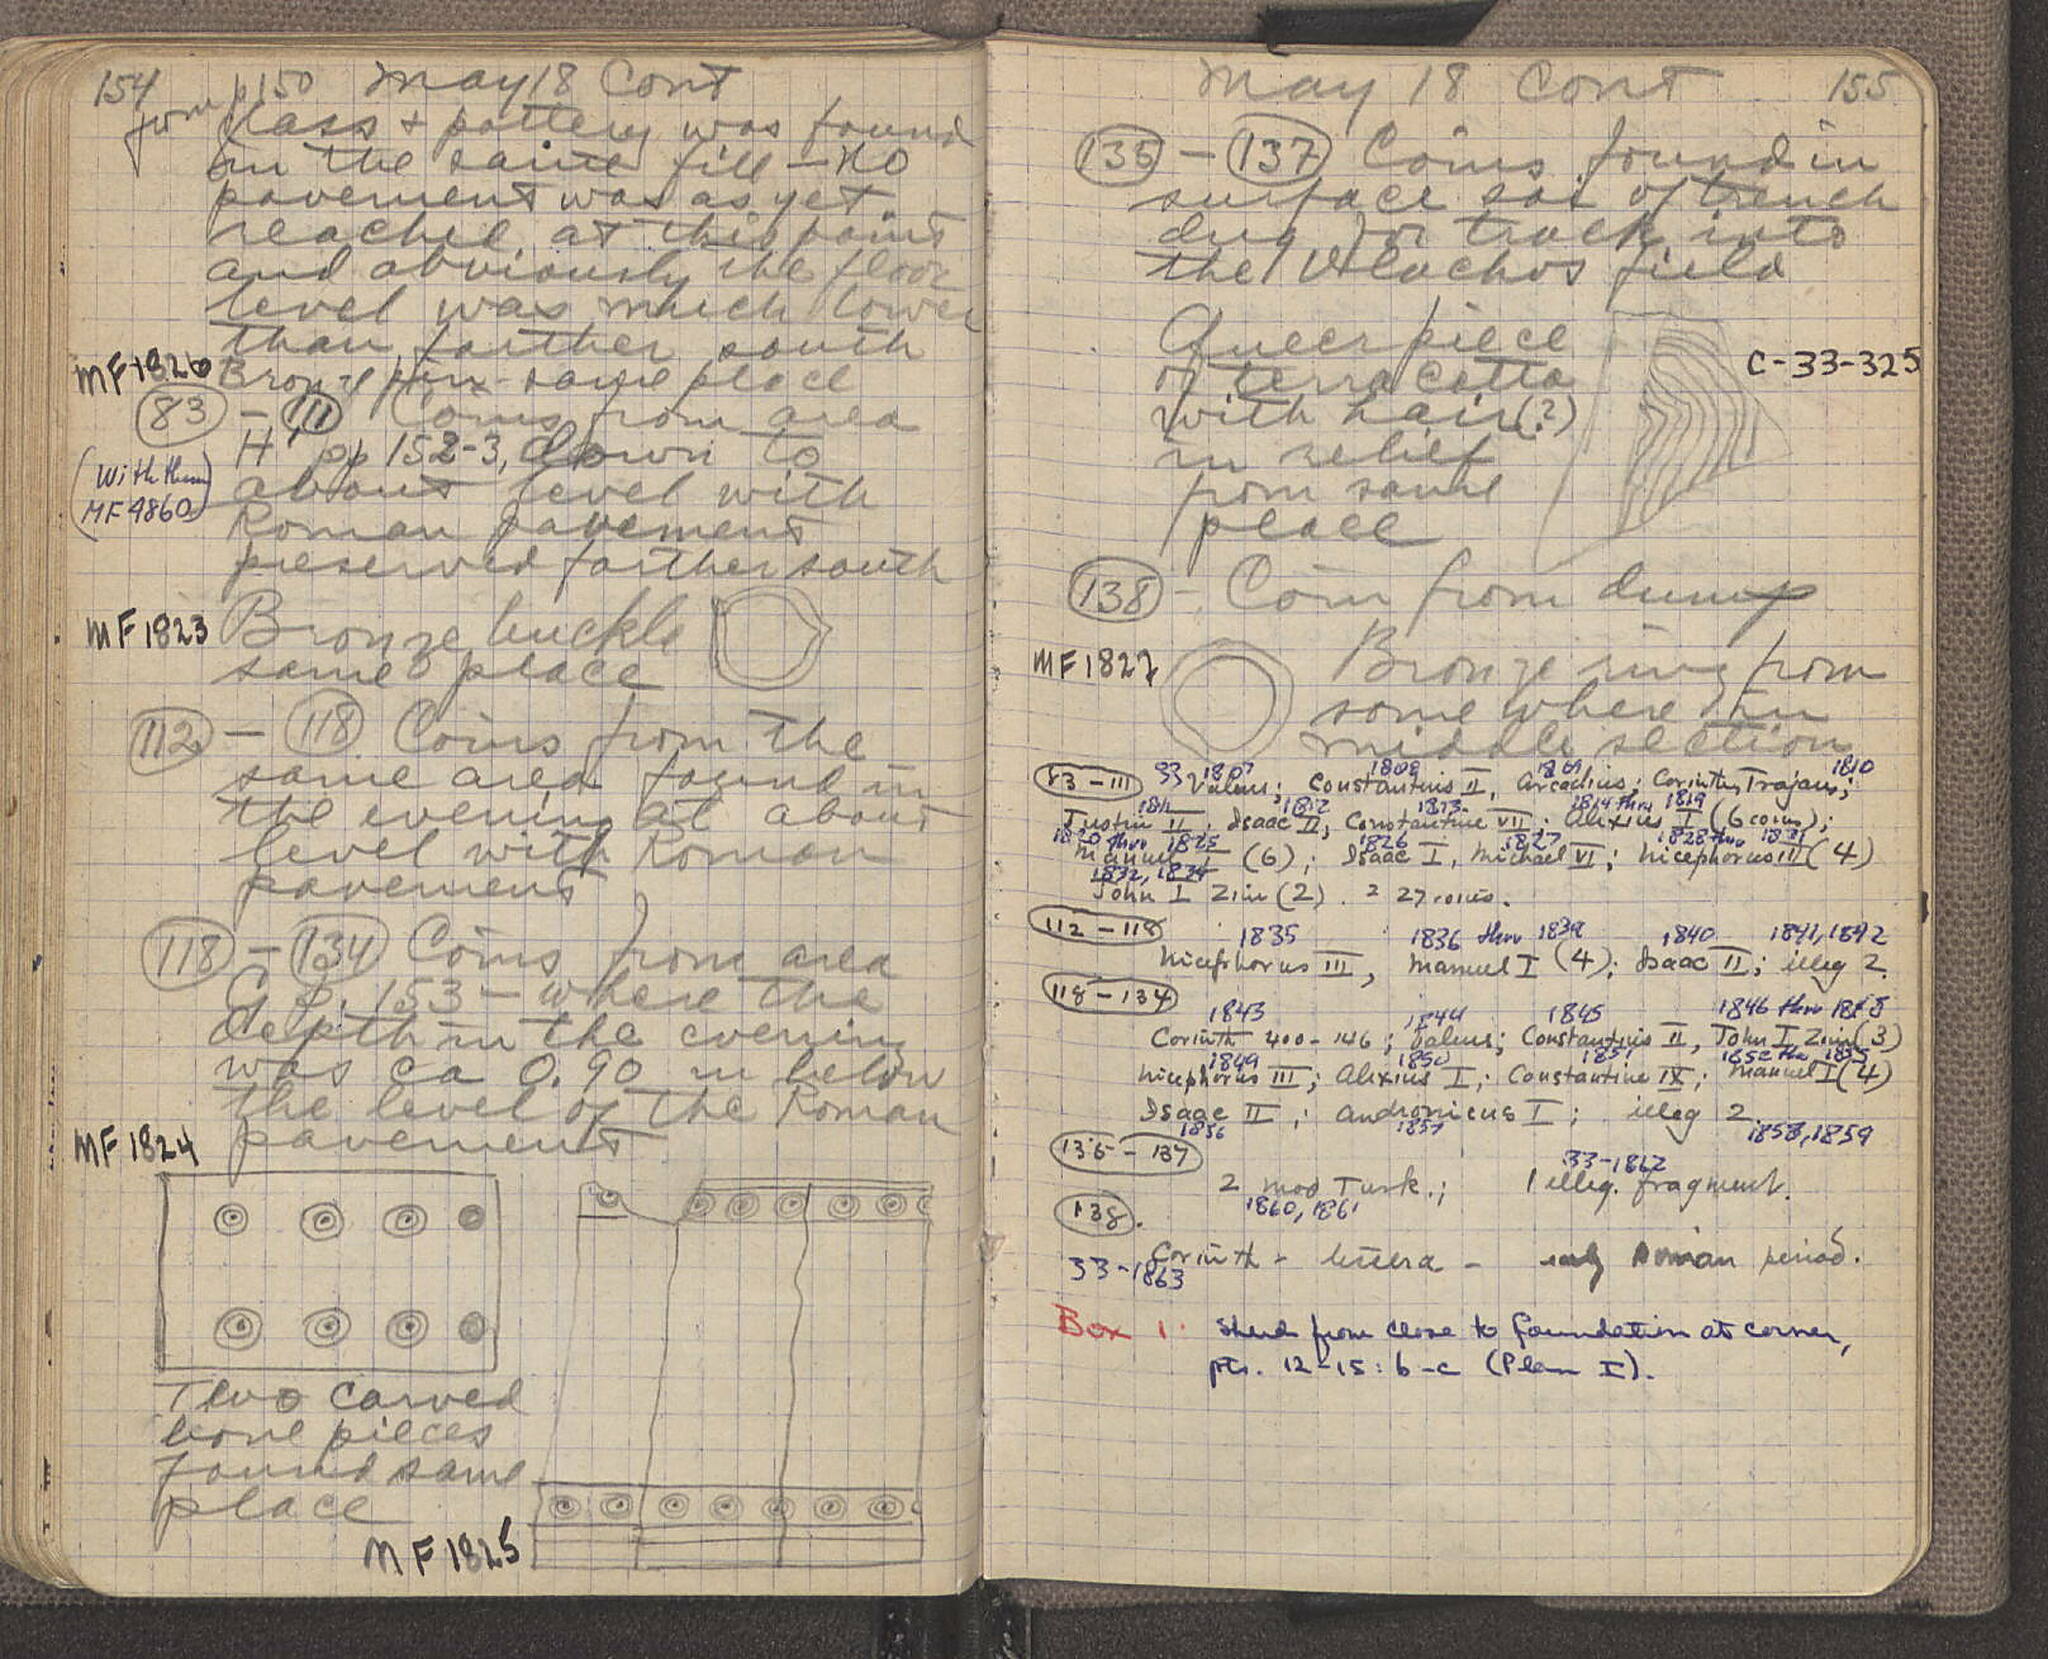 154 from p150 May 18 Cont
Glass + pottery was found
in the same fill – no
pavement was as yet
reached at this point
and obviously the floor
level was much lower
than farther south
MF 1826 Bronze pin - same place
83 – 111 Coins from area
H' pp 152-3, down to
(With them MF 9860)
about level with
Roman pavement
preserved farther south
MF 1823 Bronze buckle
same place
112 – 118 Coins from the
same area found in
the evening at about
level with Roman
pavement
118 – 134 Coins from area
G p. 153 – where the
depth in the evening
was ca 0.90 m below
the level of the Roman
pavement
MF 1824
Two carved
bone pieces
found same
place
MF 1825
May 18 Cont 155
135 – 137 Coins found in
surface soil of trench
dug for track into
the Vlachos field
Queer piece
of terra cotta
with hair(?)
in relief
from same
place
C-33-325
138 – Coin from dump
MF 1827 Bronze ring from
somewhere in
middle section
83 – 111 33 1807 1808 1809 1810
Valens; Constantius II, Arcadius; Corinth, Trajan;
1811 1812 1813 1814 thru 1819
Justin II; Isaac II, Constantine VII; Alexius I (6 coins);
1820 thru 1825 1826 1827 1828 thru 1831
Manuel I (6); Isaac I, Michael VI; Nicephorus III (4)
1832, 1834
John I Zim (2). = 27 coins.
112 – 118 1835 1836 thru 1839 1840 1841, 1842
Nicephorus III, Manuel I (4); Isaac II; illeg 2.
118 – 134
1843 1844 1845 1846 thru 1848
Corinth 400-146; Valens; Constantius II, John I Zim (3)
1849 1850 1851 1852 thru 1855
Nicephorus III; Alexius I; Constantine IX; Manuel I (4)
Isaac II; Andronicus I; illeg 2.
1856 1857 1858, 1859
135 – 137
33-1862
2 mod Turk.; 1 illeg. fragment.
1860, 1861
138.
Corinth – – early Roman period.
33-1863
Box 1. Sherd from close to foundation at corner,
pts. 12-15: b-c (Plan I).